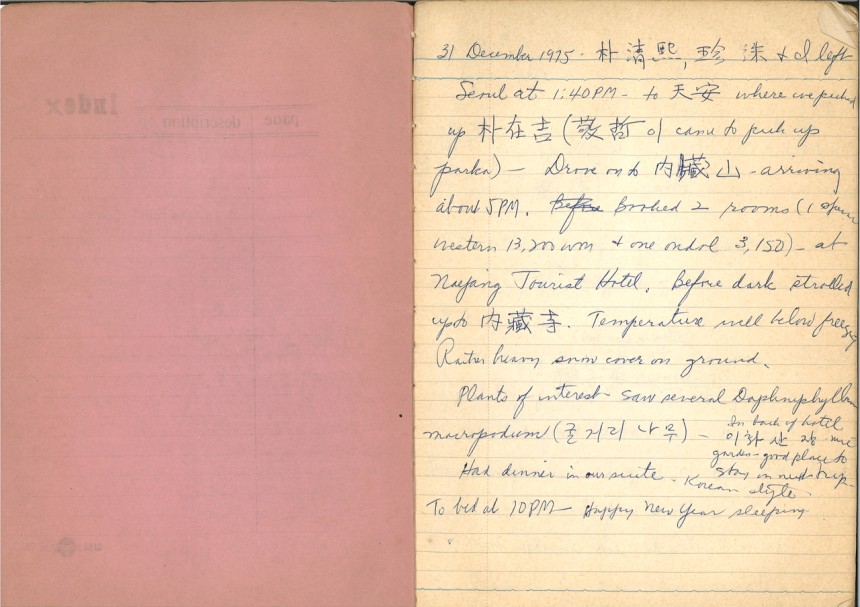 Index
page description
31 December 1975. 朴清熙, 珍洙 & I left
Seoul at 1:40 PM - to 天安 where we picked
up 朴在吉 (敬哲이 came to pick up
parka) - Drove on to 内臟山 - arriving
about 5 PM. Before Booked 2 rooms (1
western 13,200 won & one ondol 3,150) - at
Naejang Tourist Hotel. Before dark strolled
up to 内藏寺. Temperature well below freezing
Rather heavy snow cover on ground.
Plants of interest - saw several Daphniphyllum
macropodum (굴거리 나무) -
In back of hotel
이화산장 nice
garden - good place to
stay on next trip
Korean style.
Had dinner in our suite.
To bed at 10 PM - Happy New Year sleeping